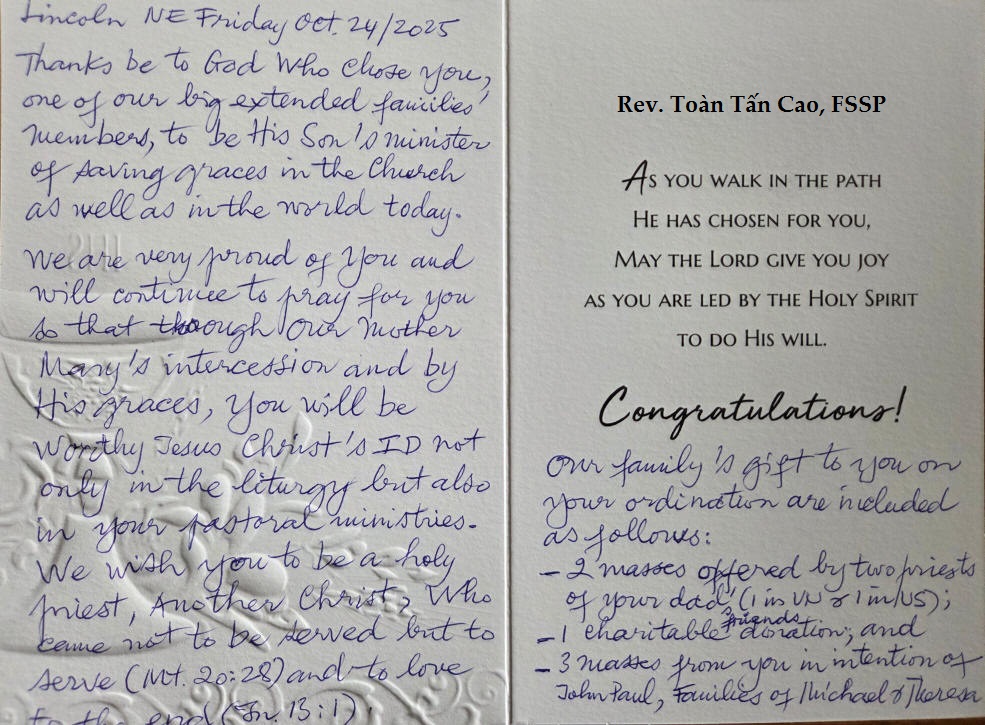 Lincoln NE Friday Oct. 24/2025
Thanks be to God Who chose you,
one of our big extended families'
members, to be His Son's minister
of saving graces in the Church
as well as in the world today.
We are very proud of You and
will continue to pray for you
so that through Our Mother
Mary's intercession and by
His graces, You will be
Worthy Jesus Christ's ID not
only in the liturgy but also
in your pastoral ministries.
We wish you to be a holy
priest, Another Christ, Who
came not to be served but to
serve (Mt. 20:28) and to love
to the end (Jn. 13:1).
Rev. Toàn Tấn Cao, FSSP
As you walk in the path
He has chosen for you,
May the Lord give you joy
as you are led by the Holy Spirit
to do His will.
Congratulations!
Our family's gift to you on
your ordination are included
as follows:
- 2 masses offered by two priests
of your dad' friends (1 in VN & 1 in US);
- 1 charitable donation; and
- 3 masses from you in intention of
John Paul, Families of Michael & Theresa